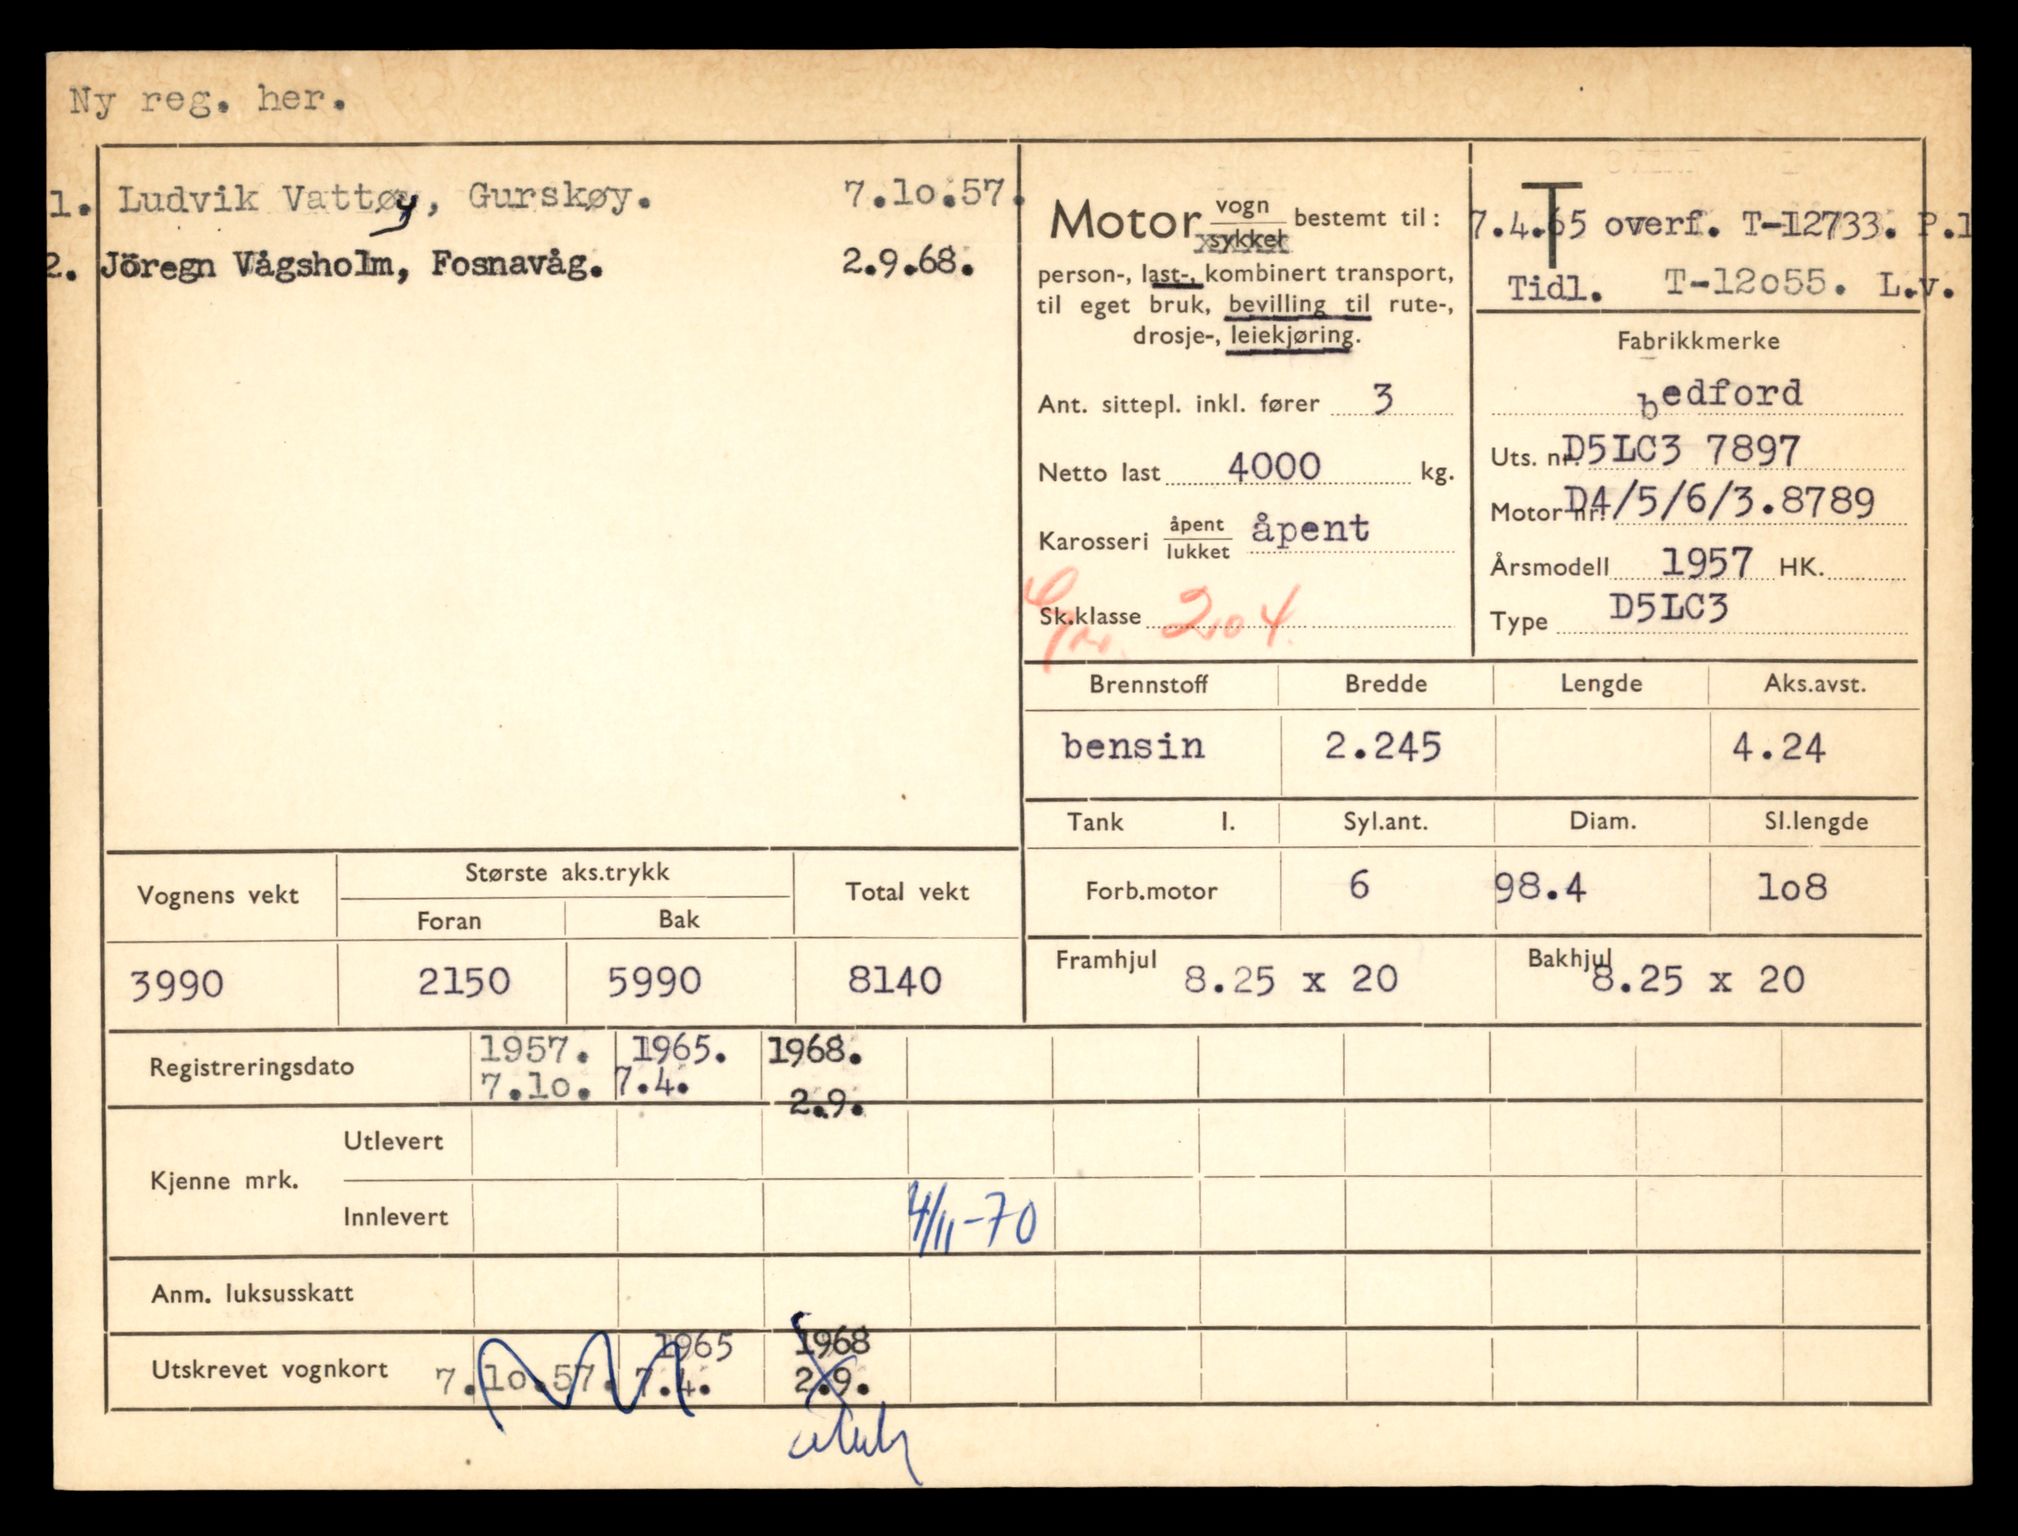 Ny reg. her.
1. Ludvik Vattøy, Gurskøy. 7.lo.57.
2. Jöregn Vågsholm, Fosnavåg. 2.9.68.
Motor vogn / sykkel bestemt til:
person-, last-, kombinert transport,
til eget bruk, bevilling til rute-,
drosje-, leiekjøring.
Ant. sittepl. inkl. fører 3
Netto last 4000 kg.
Karosseri åpent / lukket åpent
Sk.klasse 204
T
7.4.65 overf. T-12733. P.1
Tidl. T-12o55. L.v.
Fabrikkmerke
bedford
Uts. nr. D5LC3 7897
Motor nr. D4/5/6/3.8789
Årsmodell 1957 HK.
Type D5LC3
Brennstoff Bredde Lengde Aks.avst.
bensin 2.245 4.24
Tank l. Syl.ant. Diam. Sl.lengde
Forb.motor 6 98.4 lo8
Framhjul 8.25 x 20 Bakhjul 8.25 x 20
Vognens vekt Største aks.trykk Total vekt
Foran Bak
3990 2150 5990 8140
Registreringsdato 1957. 1965. 1968.
7.lo. 7.4. 2.9.
Kjenne mrk. Utlevert
Innlevert 4/11-70
Anm. luksusskatt
1965 1968
Utskrevet vognkort 7.lo.57. 7.4. 2.9.